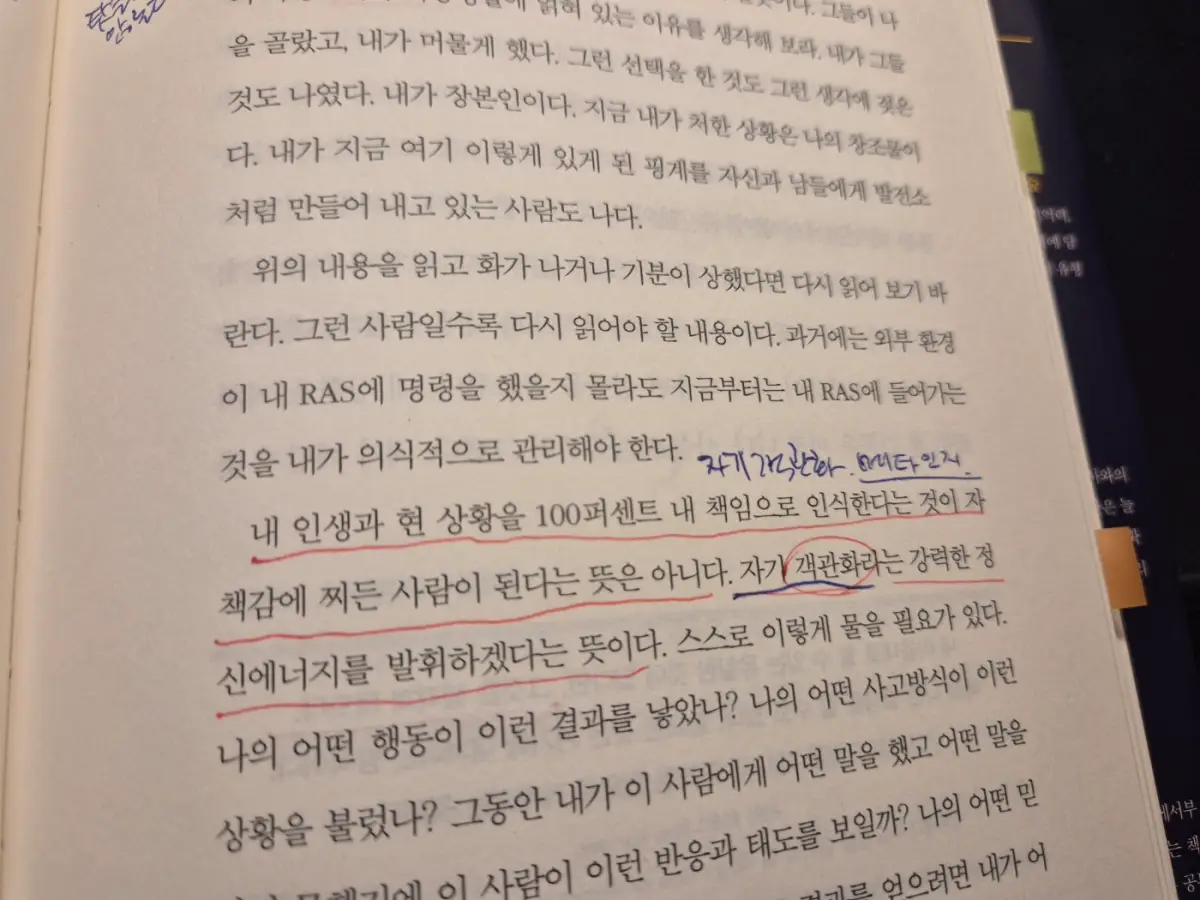 얽혀 있는 이유를 생각해 보라. 내가 그들
을 골랐고, 내가 머물게 했다. 그런 선택을 한 것도 그런 생각에 젖은
것도 나였다. 내가 장본인이다. 지금 내가 처한 상황은 나의 창조물이
다. 내가 지금 여기 이렇게 있게 된 핑계를 자신과 남들에게 발전소
처럼 만들어 내고 있는 사람도 나다.
위의 내용을 읽고 화가 나거나 기분이 상했다면 다시 읽어 보기 바
란다. 그런 사람일수록 다시 읽어야 할 내용이다. 과거에는 외부 환경
이 내 RAS에 명령을 했을지 몰라도 지금부터는 내 RAS에 들어가는
것을 내가 의식적으로 관리해야 한다.
자기객관화. 메타인지.
내 인생과 현 상황을 100퍼센트 내 책임으로 인식한다는 것이 자
책감에 찌든 사람이 된다는 뜻은 아니다. 자기 객관화라는 강력한 정
신에너지를 발휘하겠다는 뜻이다. 스스로 이렇게 물을 필요가 있다.
나의 어떤 행동이 이런 결과를 낳았나? 나의 어떤 사고방식이 이런
상황을 불렀나? 그동안 내가 이 사람에게 어떤 말을 했고 어떤 말을
이 사람이 이런 반응과 태도를 보일까? 나의 어떤 믿
결과를 얻으려면 내가 어